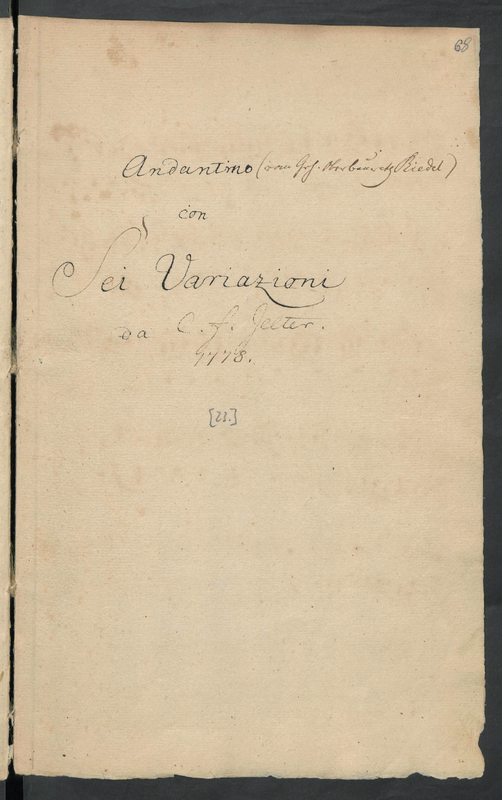 68
Andantino (vom Geh. Oberbaurath Riedel)
con
Sei Variazioni
da C. F. Zelter.
1778.
[21.]